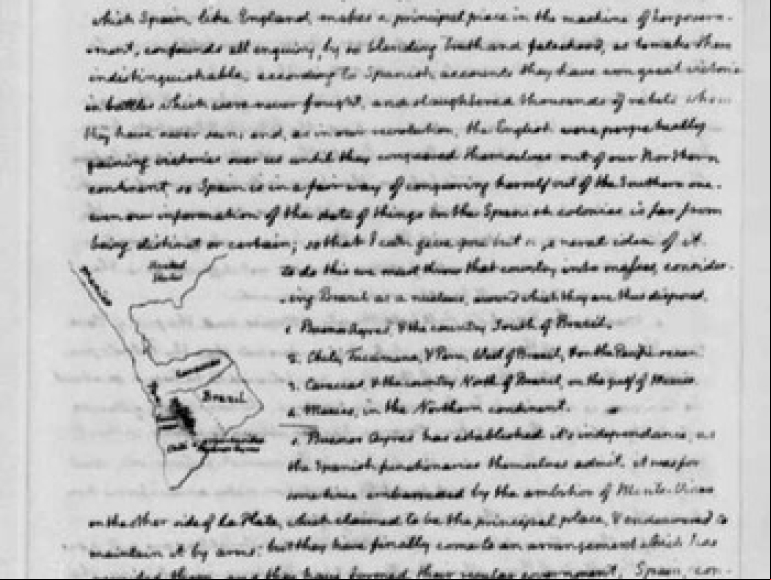 which Spain, like England, makes a principal piece in the machine of her govern-
-ment, confounds all enquiry, by so blending truth and falsehood, as to make them
indistinguishable. according to Spanish accounts they have won great victories
in battles which were never fought, and slaughtered thousands of rebels whom
they have never seen; and, as in our revolution, the English were perpetually
gaining victories over us until they conquered themselves out of our Northern
continent, so Spain is in a fair way of conquering herself out of the Southern one.
even our information of the state of things in the Spanish colonies is far from
being distinct or certain; so that I can give you but a general idea of it.
United
States
Mexico
Brazil
Chili
Buenos Ayres
to do this we must throw that country into masses, consider-
-ing Brazil as a nucleus, around which they are thus disposed.
1. Buenos Ayres & the country South of Brazil.
2. Chili, Tucumana, & Peru, West of Brazil, & on the Pacific ocean
3. Caraccas & the country North of Brazil, on the gulf of Mexico
4. Mexico, in the Northern continent.
1. Buenos Ayres has established it's independance, as
the Spanish functionaries themselves admit. it was for
sometime embarrassed by the ambition of Monte-Video
on the other side of La Plata, which claimed to be the principal place, & endeavored to
maintain it by arms: but they have finally come to an arrangement which has
them, and they have formed their regular government; Spain, con-